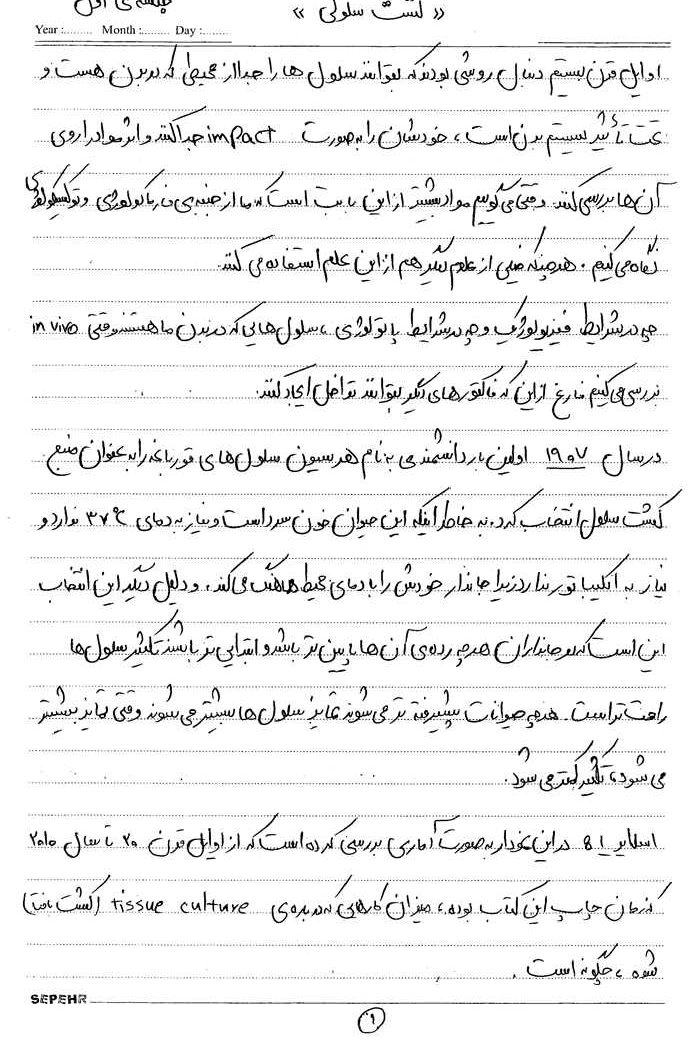 جلسه ی اول
« کشت سلولی »
Year :......... Month :......... Day :.........
اوایل قرن بیستم دنبال روشی بودند که بتوانند سلول ها را جدا از محیطی که در بدن هست و
تحت تأثیر سیستم بدن است ، خودشان را به صورت impact جدا کنند و اثر مواد را روی
آن ها بررسی کنند. وقتی می گوییم مواد بیشتر از این بابت است که ما از جنبه ی فارماکولوژی و توکسیکولوژی
نگاه می کنیم . هر چند که خیلی از علوم دیگر هم از این علم استفاده می کنند.
چه در شرایط فیزیولوژیک و چه در شرایط پاتولوژی ، سلول هایی که در بدن ما هستند وقتی in vivo
بررسی می کنیم فارغ از این که فاکتورهای دیگر بتوانند تداخل ایجاد کنند.
در سال ۱۹۰۷ اولین بار دانشمندی به نام هریسون سلول های قورباغه را به عنوان منبع
کشت سلول انتخاب کرد. به خاطر اینکه این حیوان خون سرد است و نیاز به دمای ۳۷°c ندارد و
نیاز به انکیباتور ندارد زیرا جاندار خودش را با دمای محیط هماهنگ می کند . و دلیل دیگر این انتخاب
این است که در جانداران هر چه رده ی آن ها پایین تر باشد و ابتدایی تر باشند تکثیر سلول ها
راحت تر است. هر چه حیوانات پیشرفته تر می شوند تمایز سلول ها بیشتر می شوند وقتی تمایز بیشتر
می شود، تکثیر کمتر می شود.
اسلاید 8 | در این نمودار به صورت آماری بررسی کرده است که از اوایل قرن ۲۰ تا سال ۲۰۱۰
که زمان چاپ این کتاب بوده ، میزان کارهایی که در باره ی tissue culture (کشت بافت)
شده ، چگونه است .
SEPEHR
۱